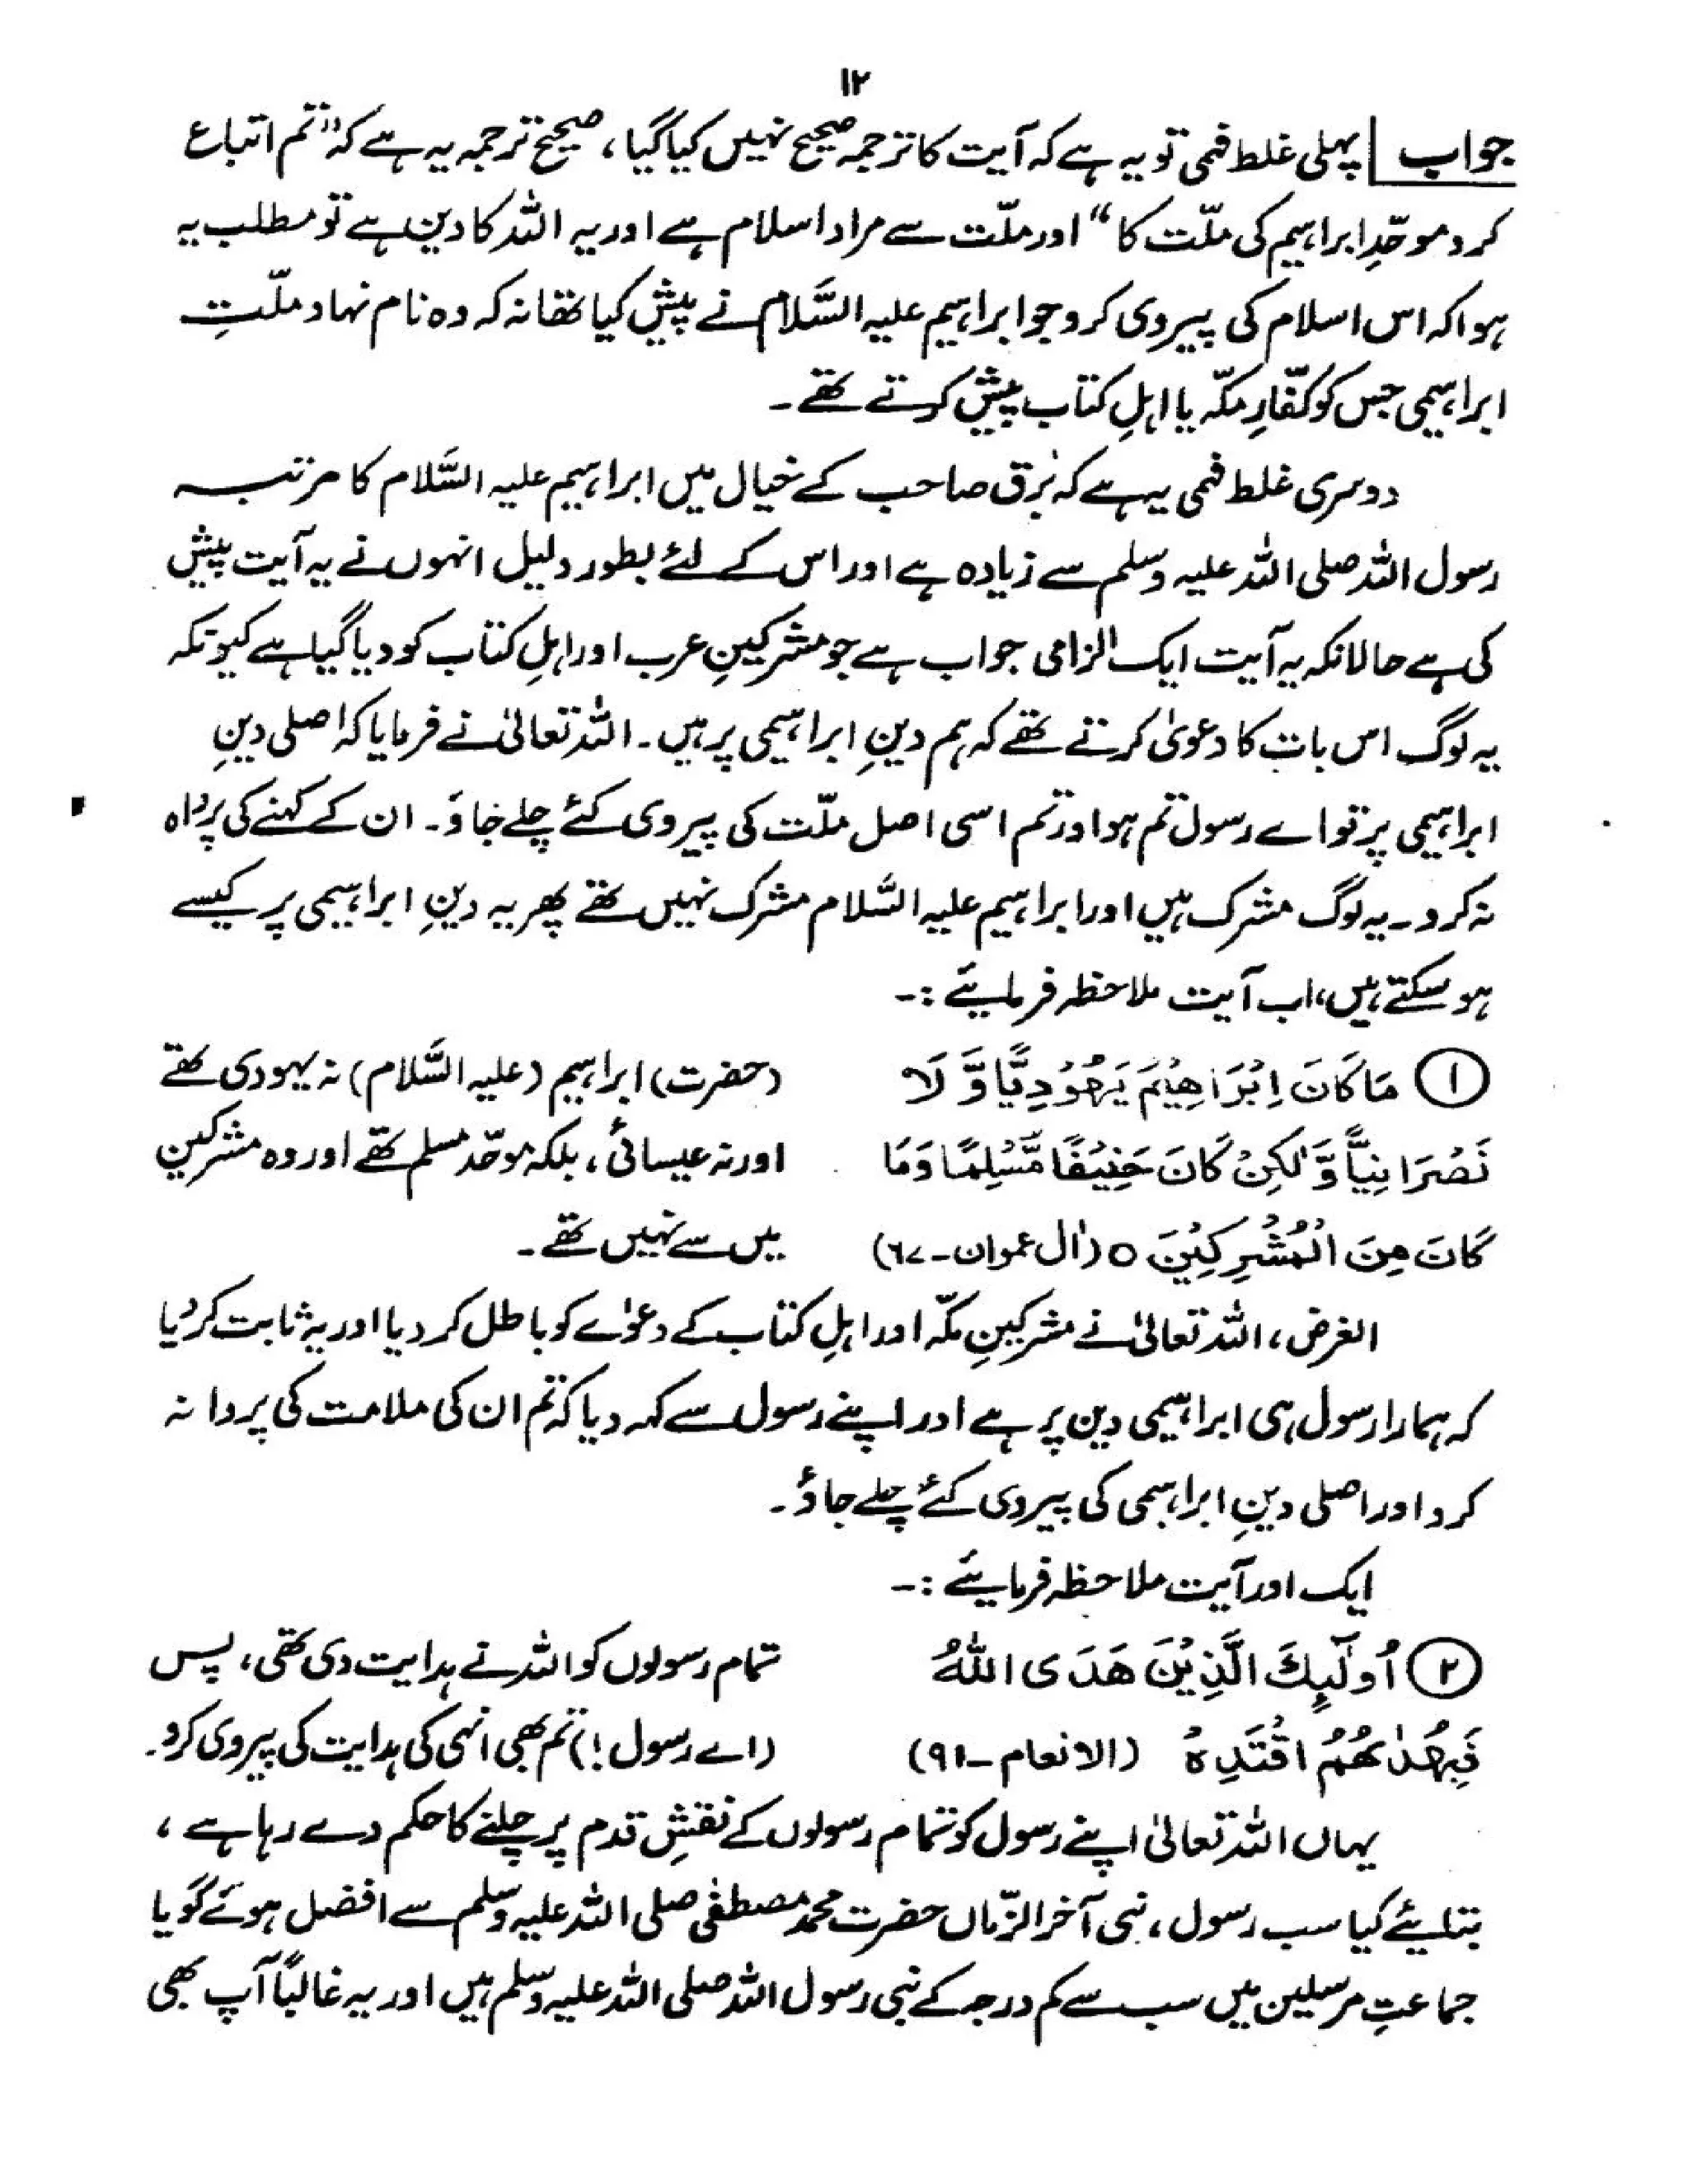 ۱۲
جواب | پہلی غلط فہمی تو یہ ہے کہ آیت کا ترجمہ صحیح نہیں کیا گیا، صحیح ترجمہ یہ ہے کہ "تم اتباع
کرو موحّدِ ابراہیم کی ملّت کا" اور ملّت سے مراد اسلام ہے اور یہ اللہ کا دین ہے تو مطلب یہ
ہوا کہ اس اسلام کی پیروی کرو جو ابراہیم علیہ السَّلام نے پیش کیا تھا نہ کہ وہ نام نہاد ملّتِ
ابراہیمی جس کو کفّارِ مکّہ یا اہلِ کتاب پیش کرتے تھے۔
دوسری غلط فہمی یہ ہے کہ برق صاحب کے خیال میں ابراہیم علیہ السَّلام کا مرتبہ
رسول اللہ صلی اللہ علیہ وسلم سے زیادہ ہے اور اس کے لئے بطور دلیل انہوں نے یہ آیت پیش
کی ہے حالانکہ یہ آیت ایک الزامی جواب ہے جو مشرکینِ عرب اور اہلِ کتاب کو دیا گیا ہے کیونکہ
یہ لوگ اس بات کا دعویٰ کرتے تھے کہ ہم دینِ ابراہیمی پر ہیں۔ اللہ تعالیٰ نے فرمایا کہ اصلی دینِ
ابراہیمی پر تو اے رسول تم ہو اور تم اسی اصل ملّت کی پیروی کئے چلے جاؤ۔ ان کے کہنے کی پرواہ
نہ کرو۔ یہ لوگ مشرک ہیں اور ابراہیم علیہ السَّلام مشرک نہیں تھے پھر یہ دینِ ابراہیمی پر کیسے
ہو سکتے ہیں، اب آیت ملاحظہ فرمایئے :۔
① مَا كَانَ اِبْرَاهِيْمَ يَهُوْدِيًّا وَّ لَا (حضرت) ابراہیم (علیہ السَّلام) نہ یہودی تھے
نَصْرَانِيًّا وَّ لٰكِنْ كَانَ حَنِيْفًا مُّسْلِمًا وَمَا اور نہ عیسائی، بلکہ موحّد مسلم تھے اور وہ مشرکین
كَانَ مِنَ الْمُشْرِكِيْنَ ○ (اٰل عمران۔ ۶۷) میں سے نہیں تھے۔
الغرض، اللہ تعالیٰ نے مشرکینِ مکّہ اور اہلِ کتاب کے دعوٰے کو باطل کر دیا اور یہ ثابت کر دیا
کہ ہمارا رسول ہی ابراہیمی دین پر ہے اور اپنے رسول سے کہہ دیا کہ تم ان کی ملامت کی پروا نہ
کرو اور اصلی دینِ ابراہیمی کی پیروی کئے چلے جاؤ۔
ایک اور آیت ملاحظہ فرمایئے :۔
② اُولٰٓئِكَ الَّذِيْنَ هَدَى اللهُ تمام رسولوں کو اللہ نے ہدایت دی تھی، پس
فَبِهُدٰىهُمُ اقْتَدِهْ (الانعام۔ ۹۱) (اے رسول!) تم بھی انہی کی ہدایت کی پیروی کرو۔
یہاں اللہ تعالیٰ اپنے رسول کو تمام رسولوں کے نقشِ قدم پر چلنے کا حکم دے رہا ہے،
بتایئے کیا سب رسول، نبی آخر الزّماں حضرت محمد مصطفٰی صلی اللہ علیہ وسلم سے افضل ہوئے گویا
جماعتِ مرسلین میں سب سے کم درجہ کے نبی رسول اللہ صلی اللہ علیہ وسلم ہیں اور یہ غالباً آپ بھی